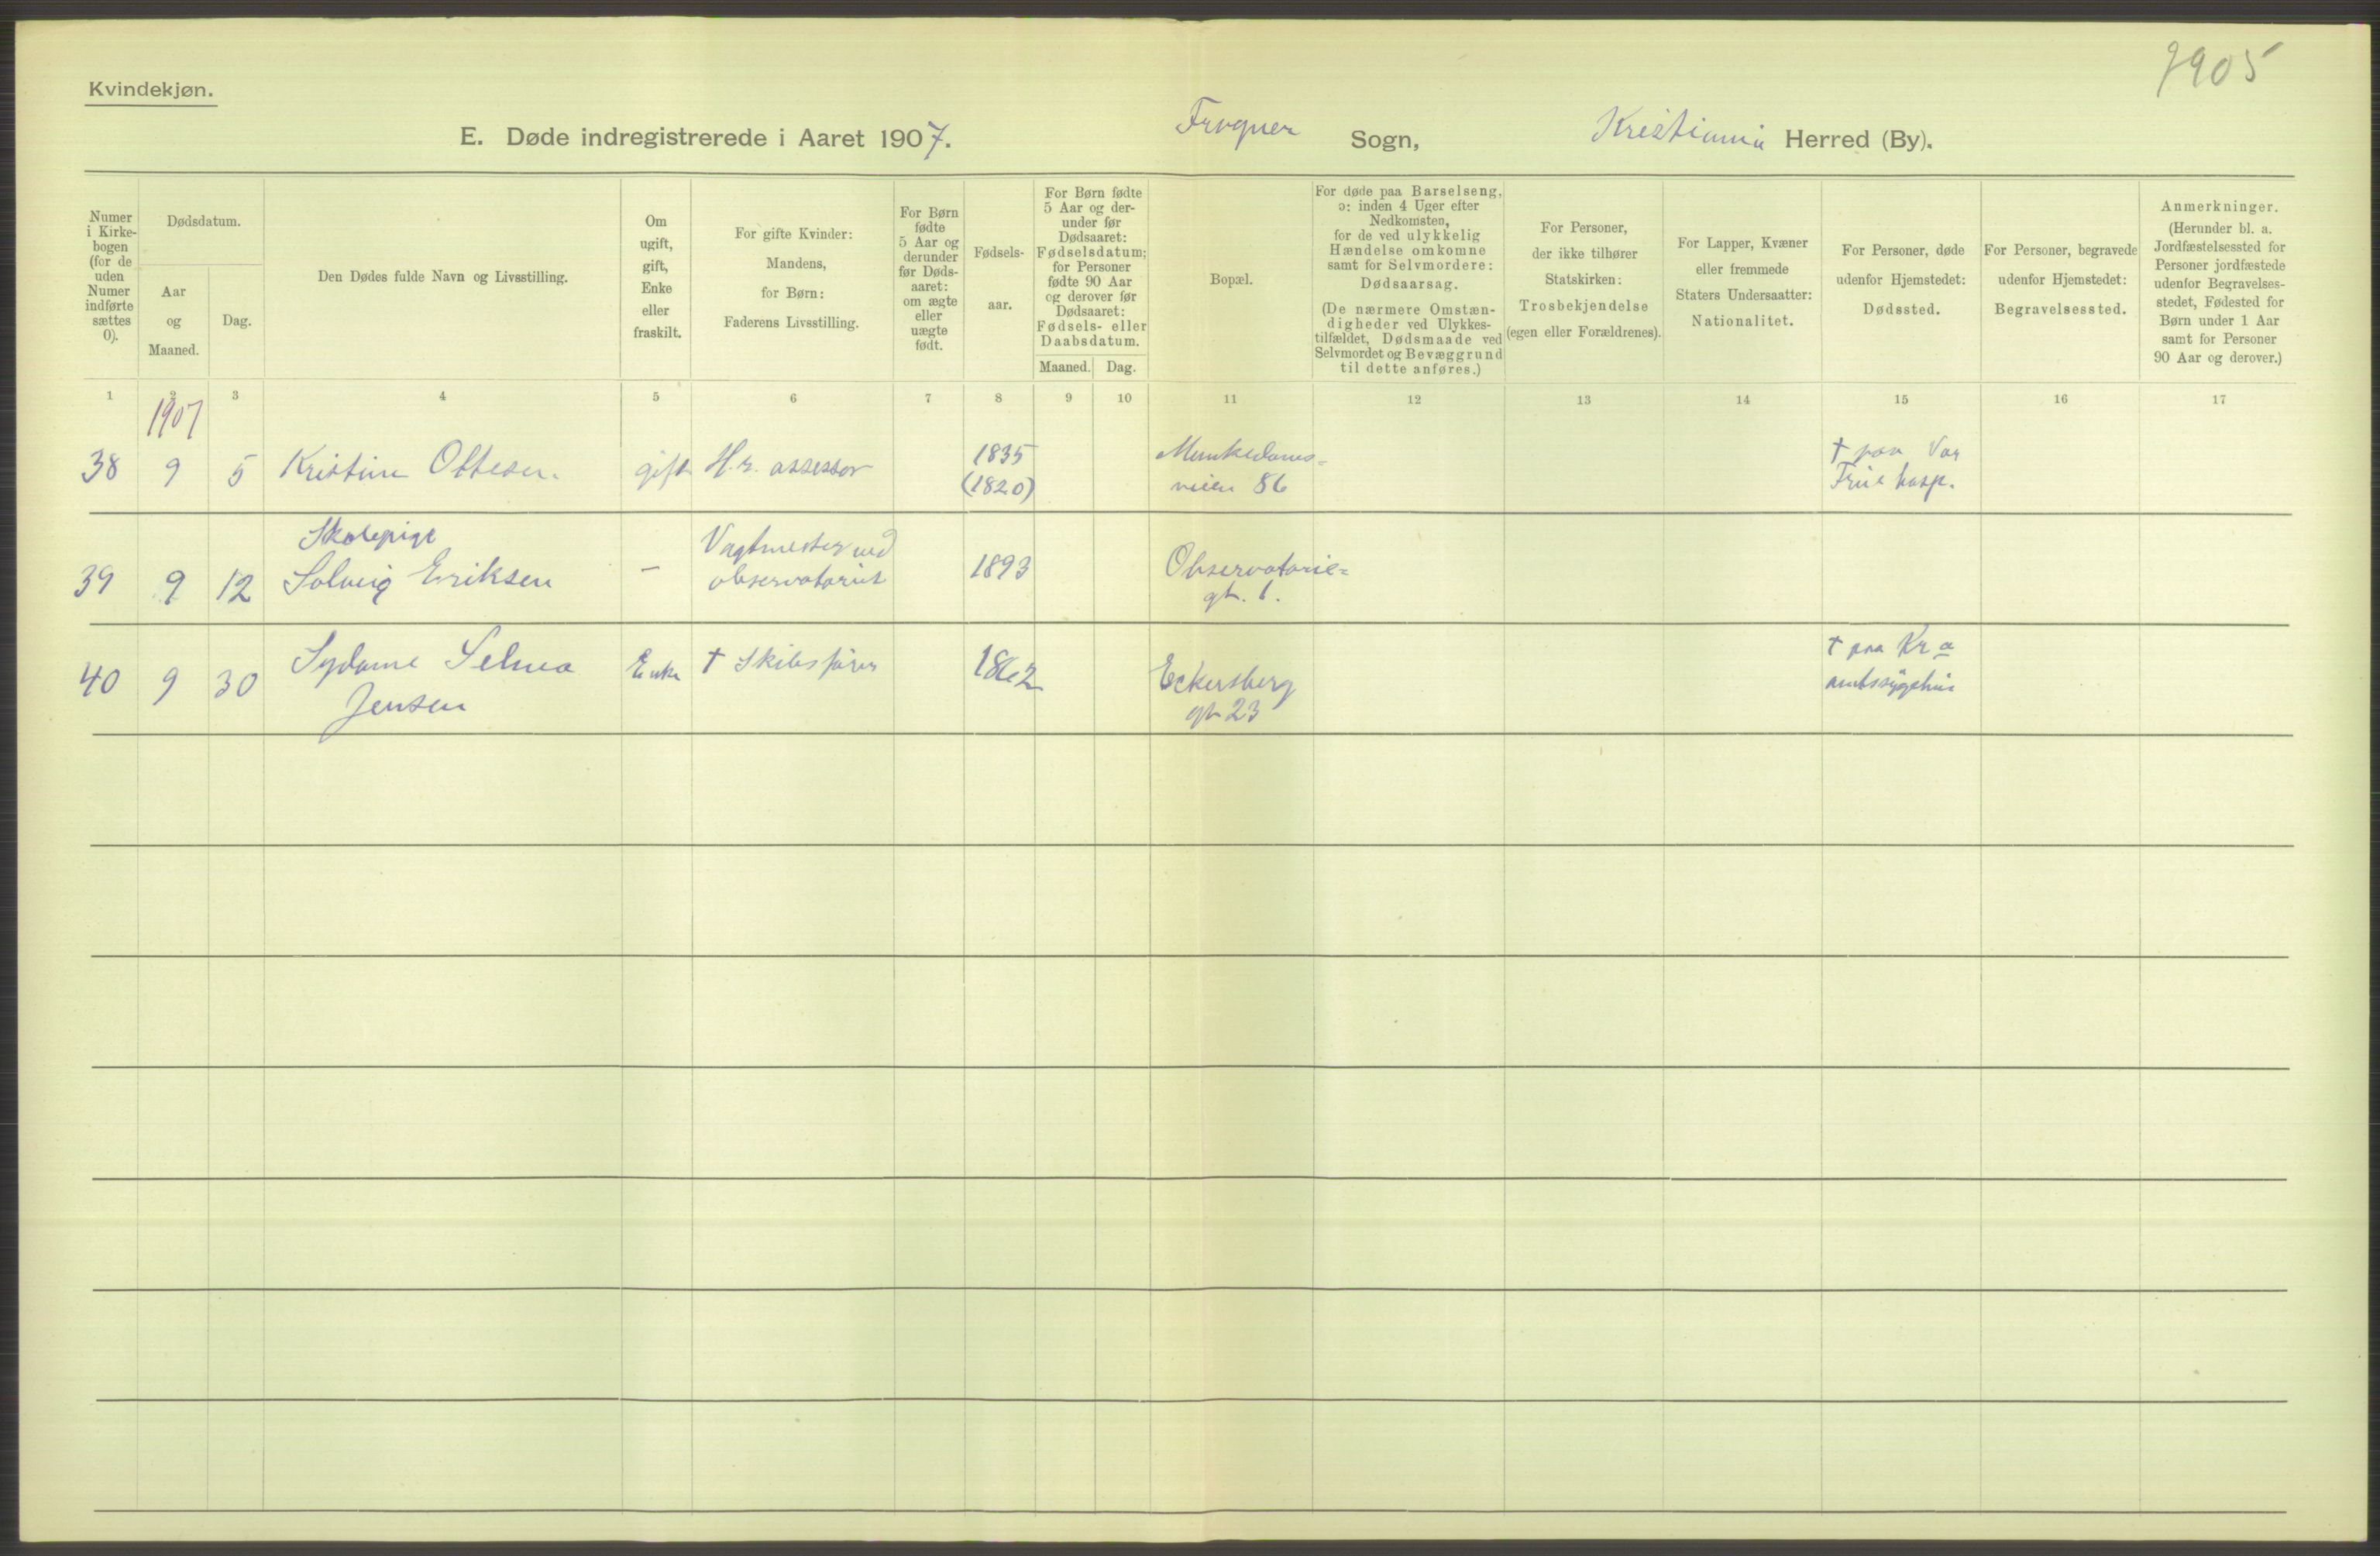 7905
Kvindekjøn.
E. Døde indregistrerede i Aaret 1907.
Frogner Sogn,
Kristiania Herred (By).
Numer
i Kirke-
bogen
(for de
uden
Numer
indførte
sættes
0).
Dødsdatum.
Aar
og
Maaned.
Dag.
Den Dødes fulde Navn og Livsstilling.
Om
ugift,
gift,
Enke
eller
fraskilt.
For gifte Kvinder:
Mandens,
for Børn:
Faderens Livsstilling.
For Børn
fødte
5 Aar og
derunder
før Døds-
aaret:
om ægte
eller
uægte
født.
Fødsels-
aar.
For Børn fødte
5 Aar og der-
under før
Dødsaaret:
Fødselsdatum;
for Personer
fødte 90 Aar
og derover før
Dødsaaret:
Fødsels- eller
Daabsdatum.
Maaned. Dag.
Bopæl.
For døde paa Barselseng,
ɔ: inden 4 Uger efter
Nedkomsten,
for de ved ulykkelig
Hændelse omkomne
samt for Selvmordere:
Dødsaarsag.
(De nærmere Omstæn-
digheder ved Ulykkes-
tilfældet, Dødsmaade ved
Selvmordet og Bevæggrund
til dette anføres.)
For Personer,
der ikke tilhører
Statskirken:
Trosbekjendelse
(egen eller Forældrenes).
For Lapper, Kvæner
eller fremmede
Staters Undersaatter:
Nationalitet.
For Personer, døde
udenfor Hjemstedet:
Dødssted.
For Personer, begravede
udenfor Hjemstedet:
Begravelsessted.
Anmerkninger.
(Herunder bl. a.
Jordfæstelsessted for
Personer jordfæstede
udenfor Begravelses-
stedet, Fødested for
Børn under 1 Aar
samt for Personer
90 Aar og derover.)
1 2 3 4 5 6 7 8 9 10 11 12 13 14 15 16 17
1907
38 9 5 Kristine Ottesen. gift H.r. assessor
1835
(1820)
Munkedams-
veien 86
† paa Vor
Frue hosp.
Skolepige
39 9 12 Solveig Eriksen –
Vagtmester ved
observatoriet
1893
Observatorie-
gt. 1.
40 9 30
Selma
Jensen
Enke † Skibsfører 1862
Eckersberg
gt 23
† paa Kr a
amtssygehus